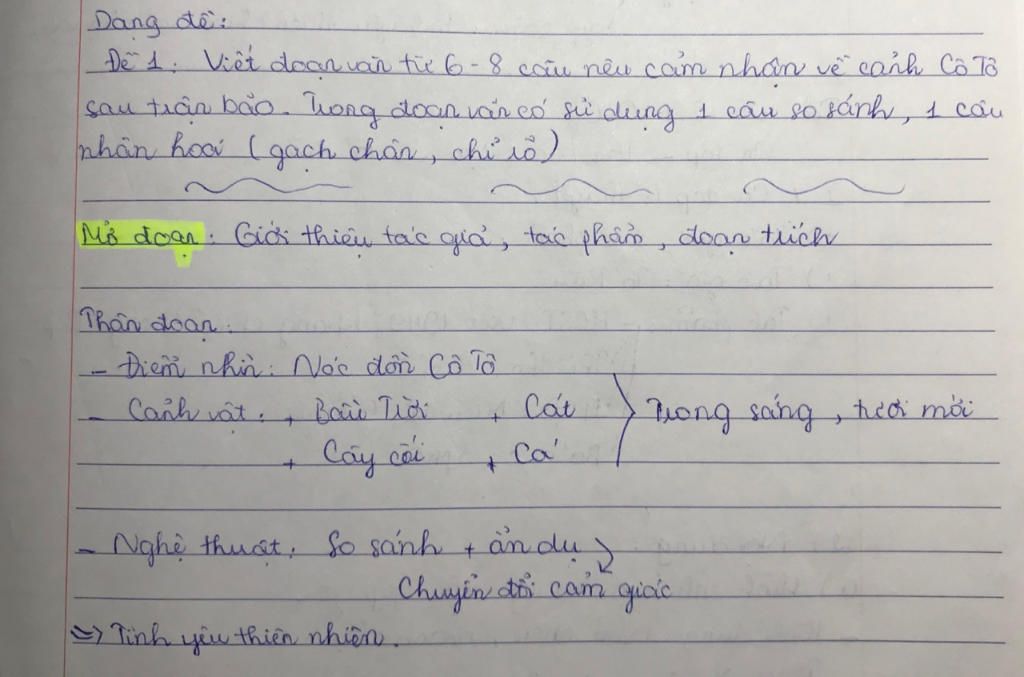 Dạng đề:
Đề 1: Viết đoạn văn từ 6-8 câu nêu cảm nhận về cảnh Cô Tô
sau trận bão. Trong đoạn văn có sử dụng 1 câu so sánh, 1 câu
nhân hoá (gạch chân, chỉ rõ)
Mở đoạn: Giới thiệu tác giả, tác phẩm, đoạn trích
Thân đoạn:
- Điểm nhìn: Nóc đồn Cô Tô
- Cảnh vật: + Bầu Trời + Cát } Trong sáng, tươi mới
+ Cây cối + Cá
- Nghệ thuật: So sánh + ẩn dụ
Chuyển đổi cảm giác
=> Tình yêu thiên nhiên.